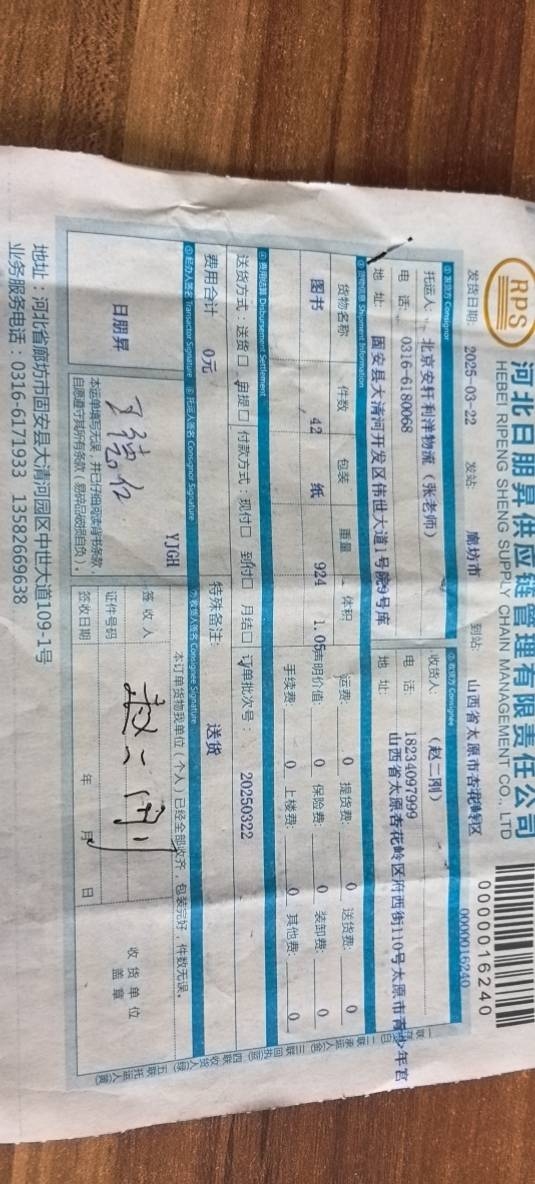 RPS
河北日朋昇供应链管理有限责任公司
HEBEI RIPENG SHENG SUPPLY CHAIN MANAGEMENT CO., LTD
0000016240
0000016240
发货日期: 2025-03-22 发站: 廊坊市 到站: 山西省太原市杏花岭区
①发货方 Consignor
②收货方 Consignee
托运人: 北京安轩利洋物流（张老师）
收货人: （赵二刚）
电 话: 0316-6180068
电 话: 18234097999
地 址: 固安县大清河开发区伟世大道1号院9号库
地 址: 山西省太原杏花岭区府西街110号太原市青少年宫
③货物信息 Shipment Information
货物名称 件数 包装 重量 体积 运费: 0 提货费: 0 送货费: 0
图书 42 纸 924 1.05 声明价值: 0 保险费: 0 装卸费: 0
手续费: 0 上楼费: 0 其他费: 0
④费用结算 Disbursement Settlement
送货方式: 送货口 自提口 付款方式: 现付口 到付口 月结口 订单批次号: 20250322
费用合计 0元 特殊备注: 送货
⑤经办人签名 Transactor Signature ⑥托运人签名 Consignor Signature ⑦收货人签名 Consignee Signature
日朋昇
YJGH
本运单填写无误，并已仔细阅读背书条款，
自愿遵守其所有条款（易碎品破损自负）。
本订单货物我单位（个人）已经全部收齐，包装完好，件数无误。
签 收 人 赵二刚
证件号码
签收日期 年 月 日
收货单位
盖 章
地址：河北省廊坊市固安县大清河园区中世大道109-1号
业务服务电话：0316-6171933 13582669638